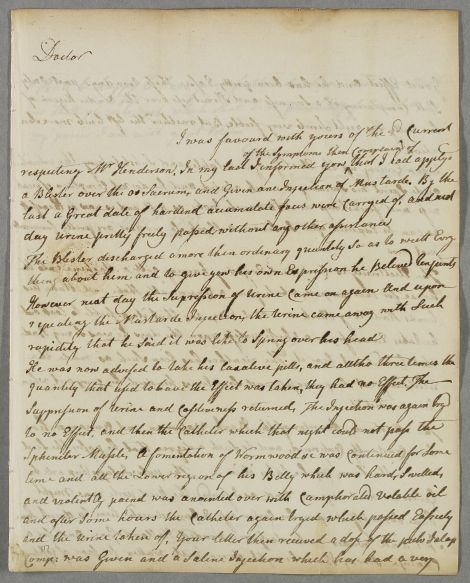 Doctor
I was favour'd with yours of the 3d Current
of the Symptoms then Complain'd of
respecting Mr Henderson. In my last I informed you that I had apply'd
a Blister over the os Sacrum, and Given ane Injection of Mustarde. By the
last a Great deale of hardend accumulate faces were carryed of, and next
day Urine pretty freely passed without any other assistance.
The Blister discharged a more then ordinary quantity So as to wett Every
thing about him and to give you his own Expression he Believed
However next day the Supression of Urine came on again And upon
repeating the Mustarde Injection, the Urine came away with Such
rapidity that he Said it was like to Spring over his head
He was now advised to take his Laxative pills, and altho three times the
quantity that us'd to have the Effect was taken, they had no Effect, The
Suppression of Urine and Costiveness returned, The Injection was again try'd
to no Effect, and then the Catheter which that night could not pass the
Sphincter Musle, A fomentation of Wormwood &c was continued for Some
time and all the Lower region of his Belly which was hard, Swelled,
and violently pained was anointed over with Camphorated volatile oil
and after Some hours the Catheter again tryed which passed Easeely
and the Urine taken of, Your letter then received a dose of the pulv: Jalap
Comp: was Given and a Saline Injection which has had a very